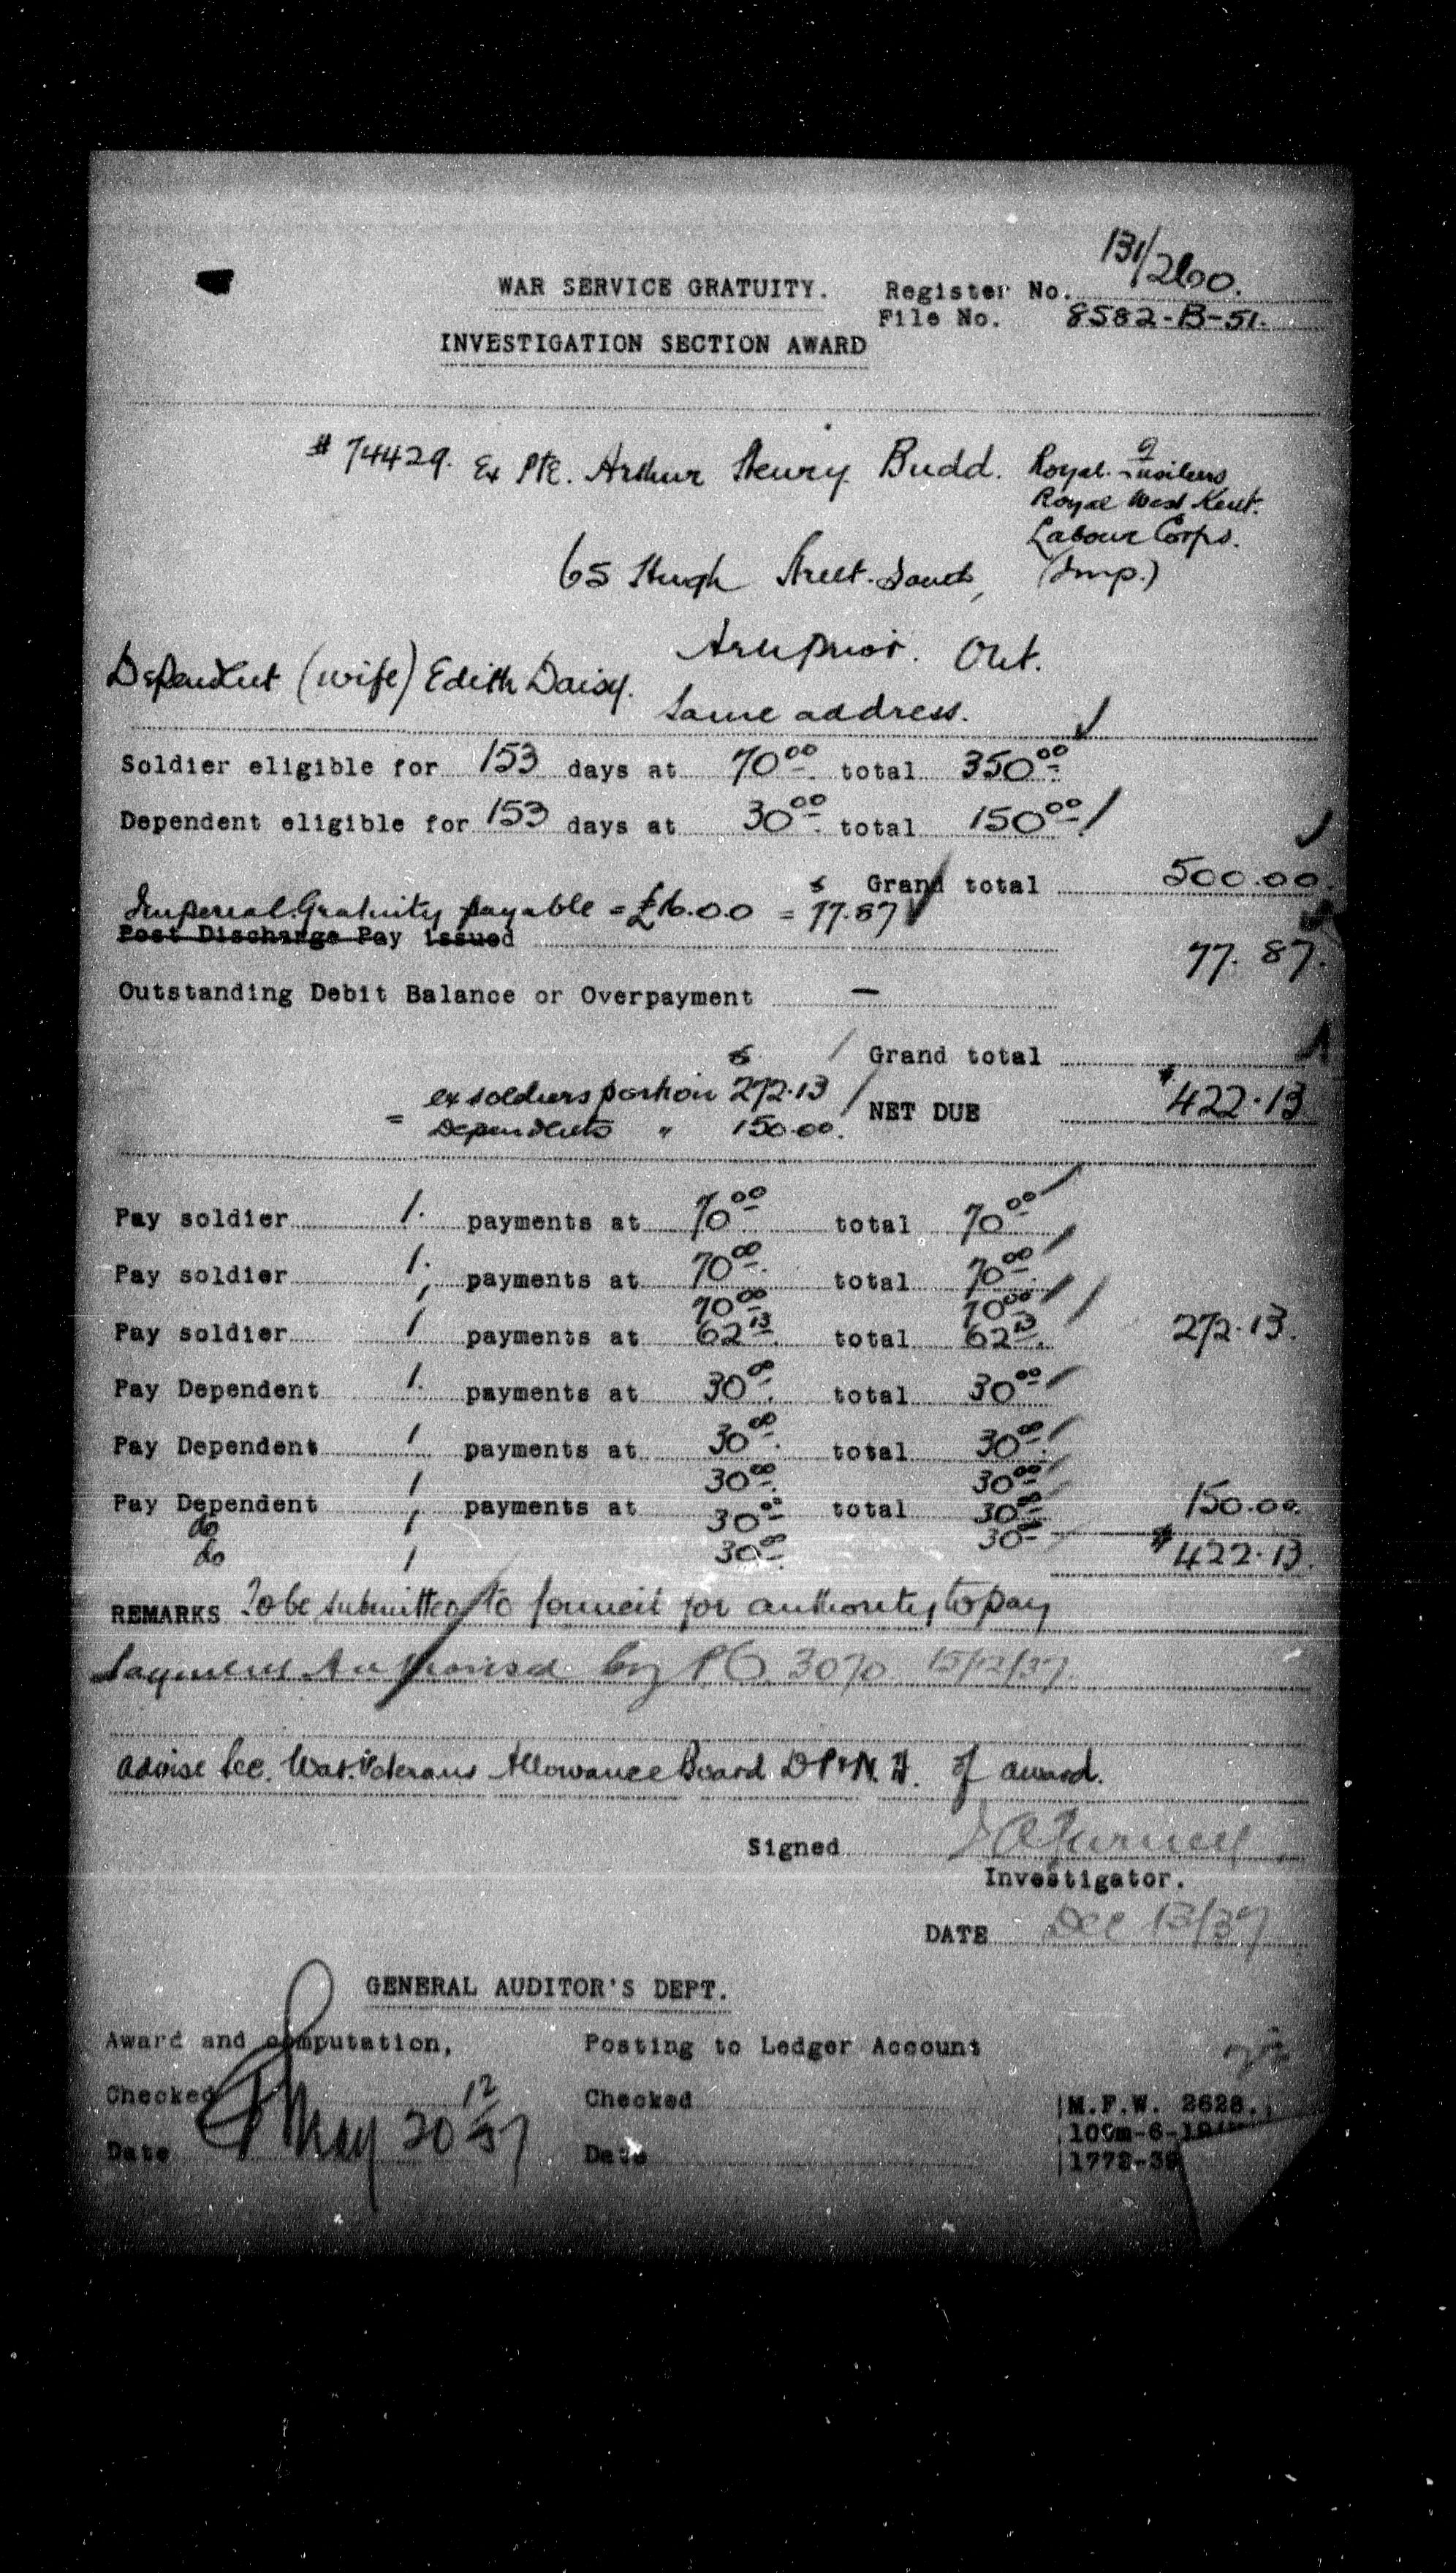 131/2600.
WAR SERVICE GRATUITY. Register No.
File No. 8582-B-51.
INVESTIGATION SECTION AWARD
# 74429. Ex Pte. Arthur Henry Budd. Royal Fusiliers
Royal West Kent.
Labour Corps.
65 Hugh Street. South, (Imp.)
Arnprior. Ont.
Dependent (wife) Edith Daisy.
Same address.
Soldier eligible for 153 days at 70 00 total 350 00
Dependent eligible for 153 days at 30 00 total 150 00
$ Grand total 500.00
Imperial Gratuity payable = £16.0.0 = 77.87
Post Discharge Pay issued 77.87.
Outstanding Debit Balance or Overpayment —
$ Grand total
= ex soldiers portion 272.13 NET DUE $422.13
Dependents " 150.00.
Pay soldier 1. payments at 70 00 total 70 00
Pay soldier 1. payments at 70 00 total 70 00
1 70 00 70 00
Pay soldier 1 payments at 62 13 total 62 13 272.13.
Pay Dependent 1. payments at 30 00 total 30 00
Pay Dependent 1 payments at 30 00 total 30 00
1 30 00 30 00
Pay Dependent 1 payments at 30 00 total 30 00 150.00.
do 30 00
do 1 30 00 $422.13.
REMARKS To be submitted to Council for authority to pay
Payment Authorised by P.C. 3070 15/12/37
advise Sec. War Veterans Allowance Board D.P.&N.H. of award.
Signed
Investigator.
DATE Dec 13/37
GENERAL AUDITOR'S DEPT.
Award and computation, Posting to Ledger Account
Checked Checked
Date 20 12/37 Date
M.F.W. 2628.
100m-6-19
1772-39